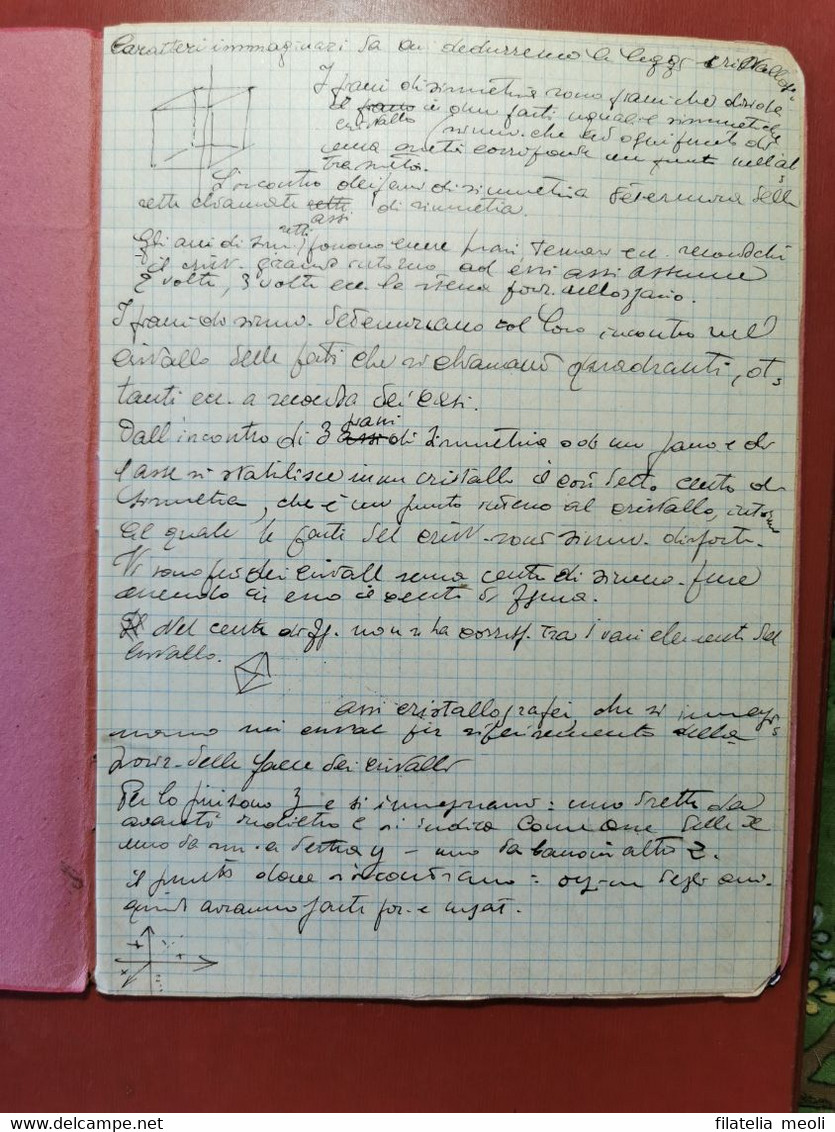 Caratteri immaginari da cui dedurremo le leggi cristallog.
I piani di simmetria sono piani che divide
il piano in due parti uguali e simmetriche
cristallo (simm. che ad ogni punto di
una metà corrisponde un punto nell'al
tra metà.
L'incontro dei piani di simmetria determina delle
rette chiamate rette di simmetria.
assi
retti
Gli assi di sim. possono essere binari, ternari ecc. secondo chi
il crist. girando intorno ad essi assi assume
2 volte, 3 volte ecc. la stessa posiz. nello spazio.
I piani di simm. determinano col loro incontro nel
cristallo delle parti che si chiamano quadranti, ot
tanti ecc. a seconda dei casi.
piani
Dall'incontro di 3 assi di simmetria o di un piano e di
1 asse si stabilisce in un cristallo il così detto centro di
simmetria, che è un punto interno al cristallo, intorno
al quale le parti del crist. sono simm. disposte.
Vi sono poi dei cristall senza centro di simm. pure
avendo in esso il centro di figura.
Nel centro di fig. non si ha corrisp. tra i vari elementi del
cristallo.
assi cristallografici, che si immagi
nano nei cristal per riferimento della
posiz. delle facce dei cristalli
Per lo più sono 3 e si immaginano: uno diretto da
avanti indietro e si indica come asse delle x
uno da sin. a destra y – uno da basso in alto z.
il punto dove si incontrano = origin degli assi.
quindi avranno parti pos. e negat.
+
+
x
filatelia meoli